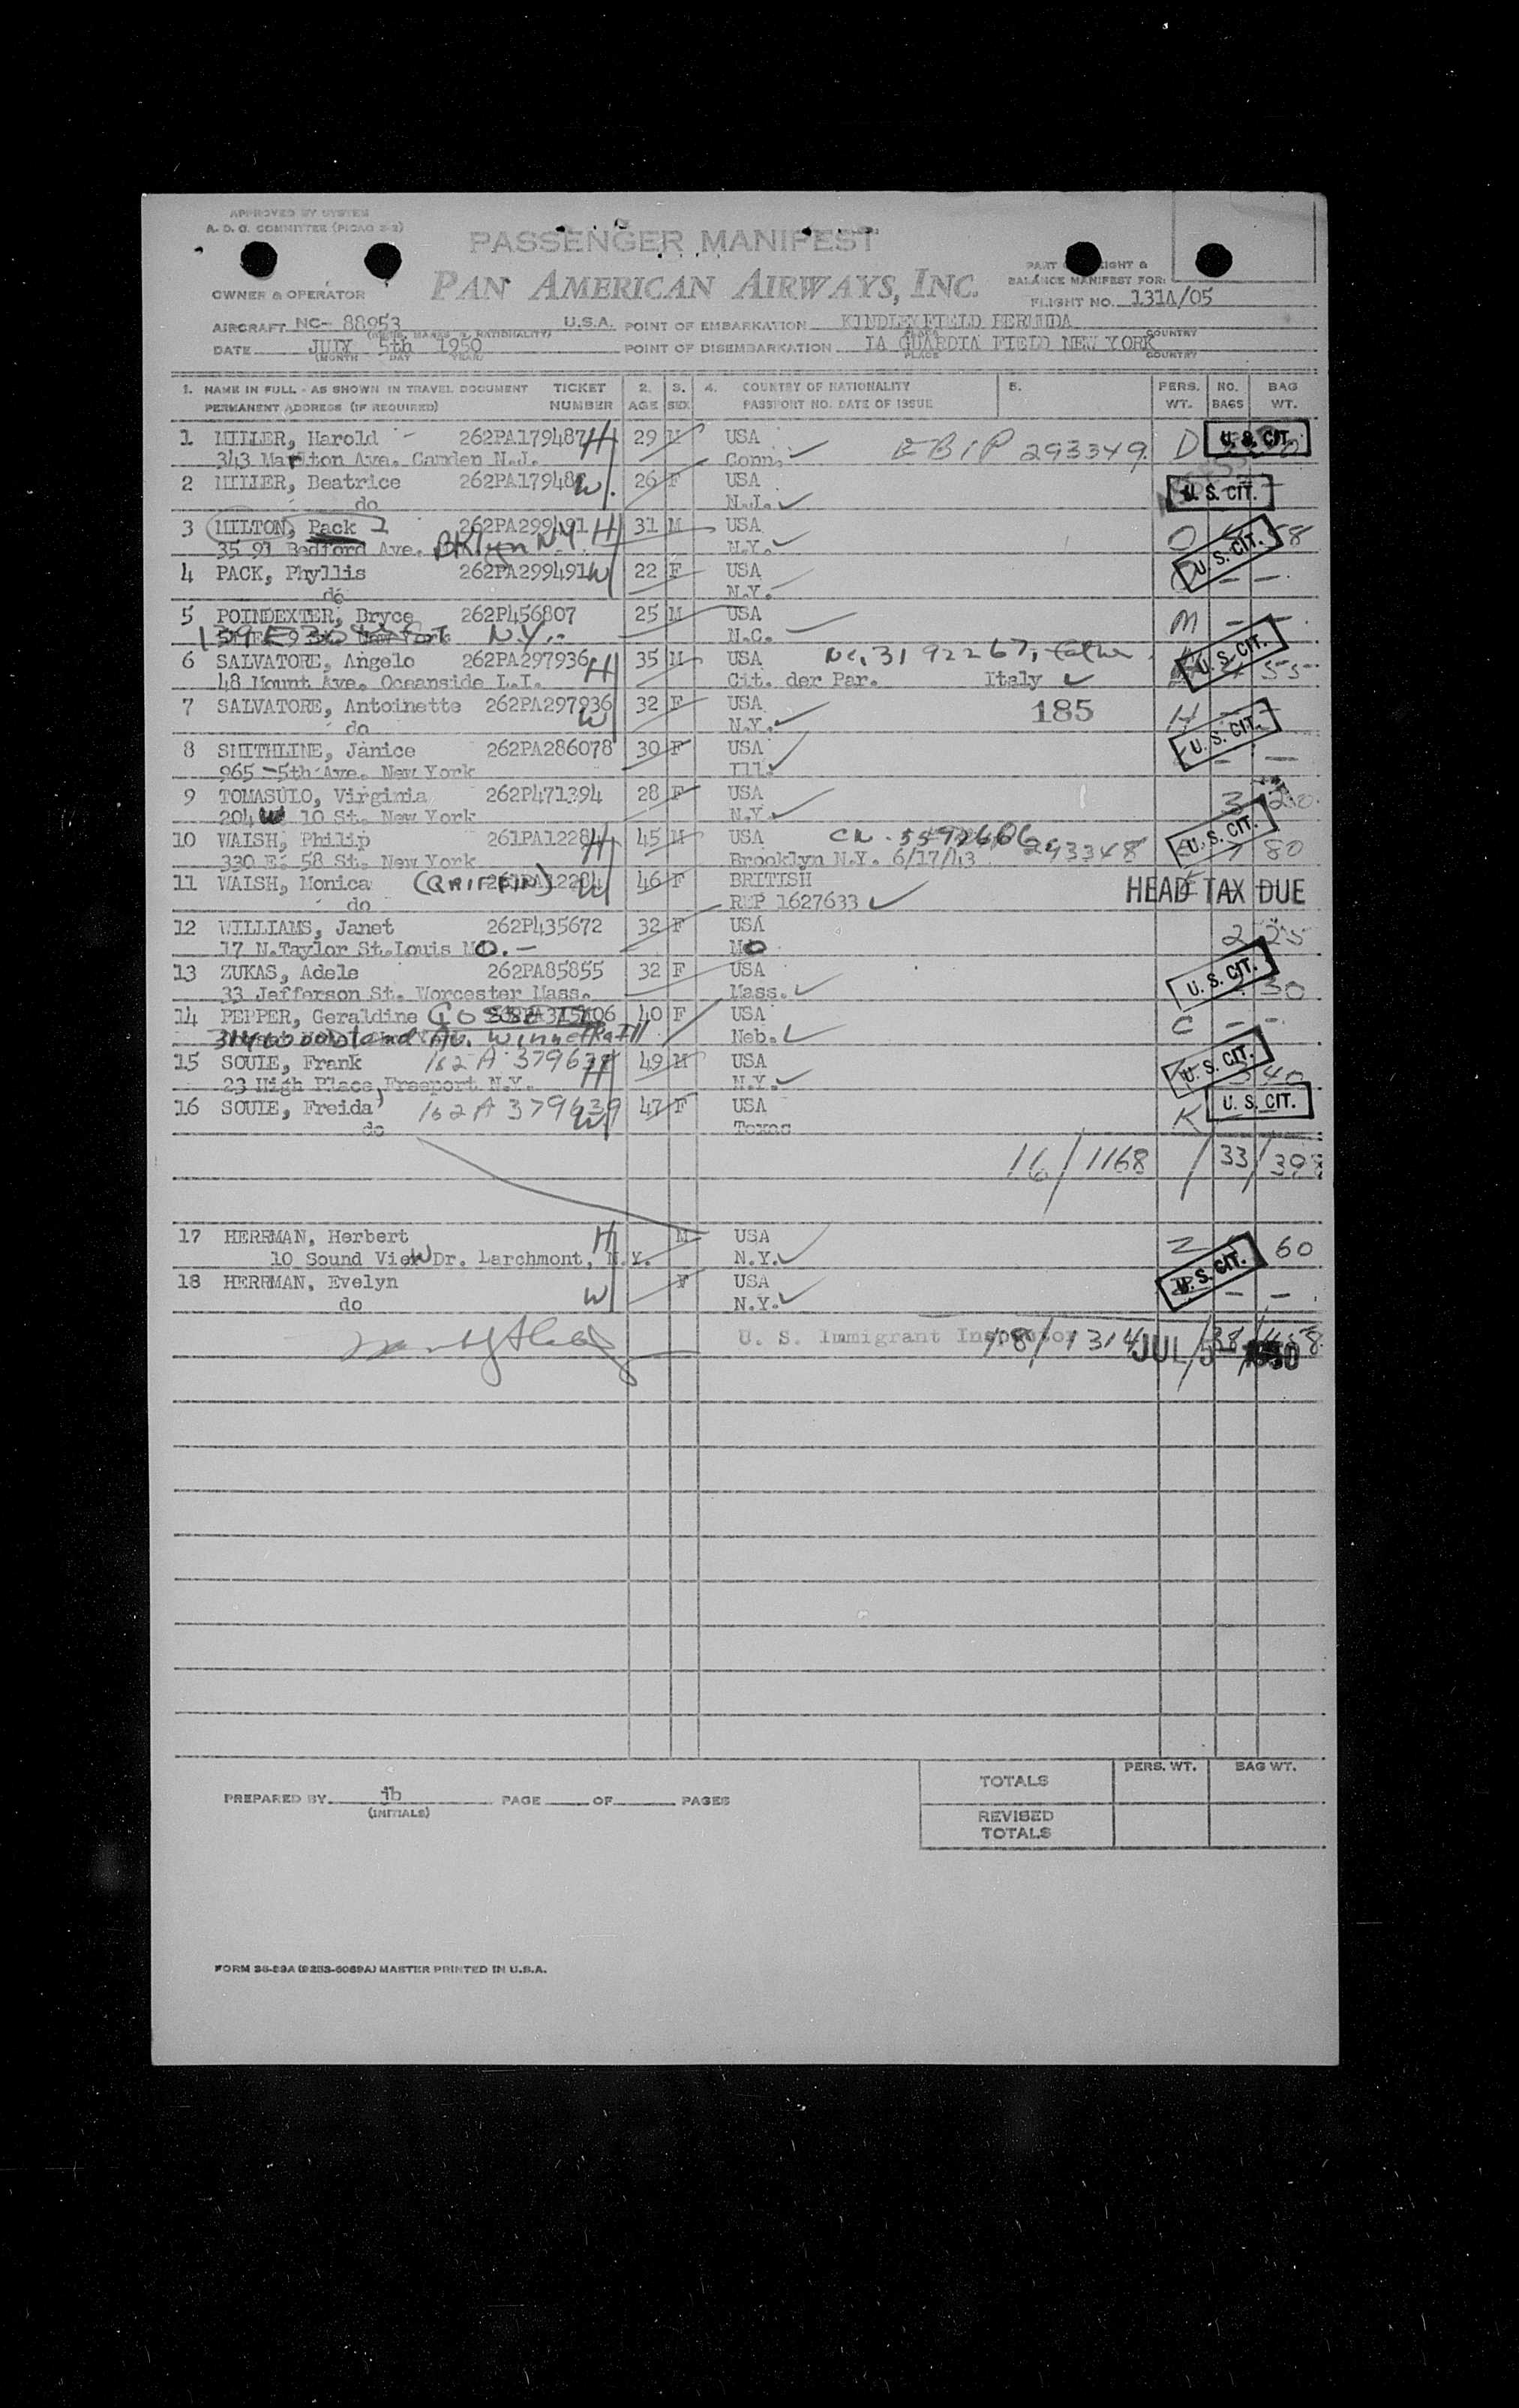 APPROVED BY SYSTEM
A. D. C. COMMITTEE (PICAO 2-2)
PASSENGER MANIFEST
PAN AMERICAN AIRWAYS, INC.
OWNER & OPERATOR
BALANCE MANIFEST FOR:
FLIGHT NO. 131A/05
AIRCRAFT NC- 88953 U.S.A. POINT OF EMBARKATION KINDLEY FIELD BERMUDA
PLACE COUNTRY
DATE JULY 5th 1950 POINT OF DISEMBARKATION LA GUARDIA FIELD NEW YORK
(MONTH DAY YEAR) PLACE COUNTRY
1. NAME IN FULL - AS SHOWN IN TRAVEL DOCUMENT TICKET 2. 3. 4. COUNTRY OF NATIONALITY 5. PERS. NO. BAG
PERMANENT ADDRESS (IF REQUIRED) NUMBER AGE SEX PASSPORT NO. DATE OF ISSUE WT. BAGS WT.
1 MILLER, Harold 262PA179487 H 29 M USA EBIP 293349 D U. S. CIT.
343 Marlton Ave. Camden N.J. Conn.
2 MILLER, Beatrice 262PA17948 W 26 F USA U. S. CIT.
do N.J.
3 MILTON, Pack 262PA299491 H 31 M USA
35 91 Bedford Ave. BKlyn NY N.Y. U. S. CIT.
4 PACK, Phyllis 262PA299491 W 22 F USA
do N.Y.
5 POINDEXTER, Bryce 262P456807 25 M USA M
N.Y. N.C.
6 SALVATORE, Angelo 262PA297936 H 35 M USA Nc. 3192267, father U. S. CIT.
48 Mount Ave. Oceanside L.I. Cit. der Par. Italy 55
7 SALVATORE, Antoinette 262PA297936 W 32 F USA 185 H
do N.Y. U. S. CIT.
8 SMITHLINE, Janice 262PA286078 30 F USA
965 -5th Ave. New York Ill.
9 TOMASULO, Virginia 262P471394 28 F USA 3 20
204 W 10 St. New York N.Y.
10 WALSH, Philip 261PA12284 H 45 M USA CN. 5592606 U. S. CIT.
330 E. 58 St. New York Brooklyn N.Y. 6/17/43 293348 80
11 WALSH, Monica (GRIFFIN) 261PA12284 W 46 F BRITISH HEAD TAX DUE
do REP 1627633
12 WILLIAMS, Janet 262P435672 32 F USA 2 25
17 N.Taylor St.Louis MO. MO
13 ZUKAS, Adele 262PA85855 32 F USA U. S. CIT.
33 Jefferson St. Worcester Mass. Mass. 30
14 PEPPER, Geraldine 40 F USA C
314 Woodland Av. Winnetka Ill Neb.
15 SOULE, Frank 162 A 379638 H 49 M USA U. S. CIT.
23 High Place, Freeport N.Y. N.Y. 40
16 SOULE, Freida 162 A 379639 W 47 F USA K U. S. CIT.
do Texas
16/1168 / 33/
17 HERRMAN, Herbert H M USA Z 60
10 Sound View Dr. Larchmont, N.Y. N.Y. U. S. CIT.
18 HERRMAN, Evelyn W F USA
do N.Y.
U. S. Immigrant Inspector 18/1314 JUL 5 1950
TOTALS PERS. WT. BAG WT.
PREPARED BY jb PAGE OF PAGES
(INITIALS)
REVISED
TOTALS
FORM 38-89A (9253-6089A) MASTER PRINTED IN U.S.A.